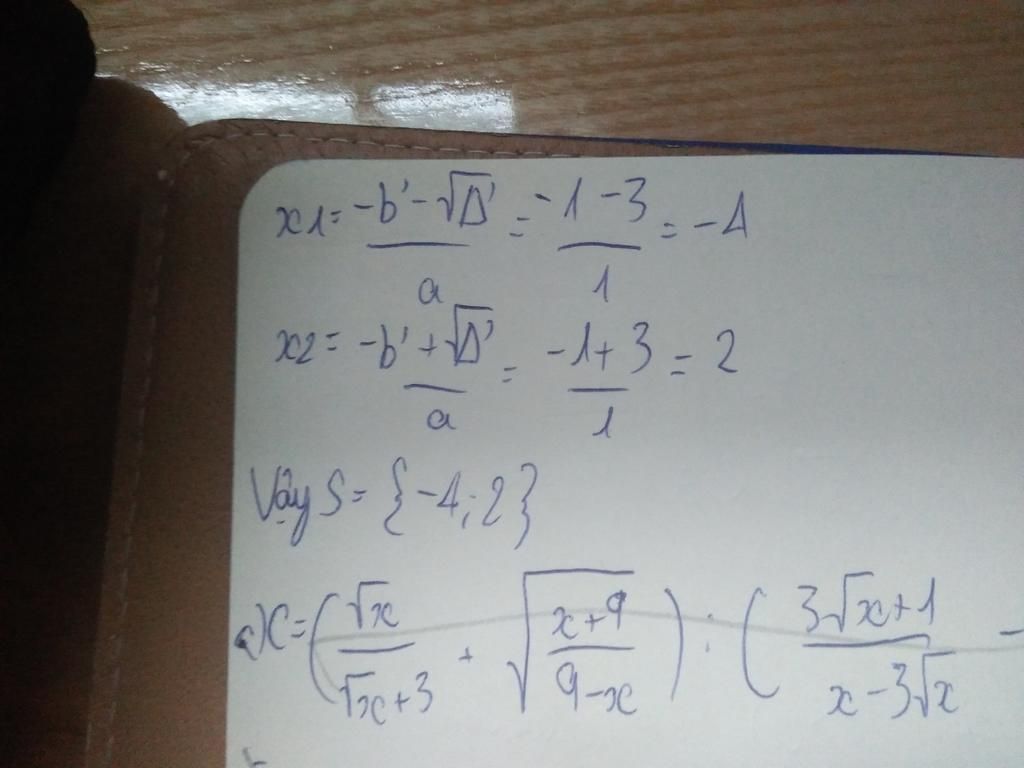 x1 = (-b' - √Δ')/a = (-1 - 3)/1 = -4
x2 = (-b' + √Δ')/a = (-1 + 3)/1 = 2
Vậy S = {-4; 2}
a) C = (√x/(√x + 3) + √((x + 9)/(9 - x))) : ((3√x + 1)/(x - 3√x) -